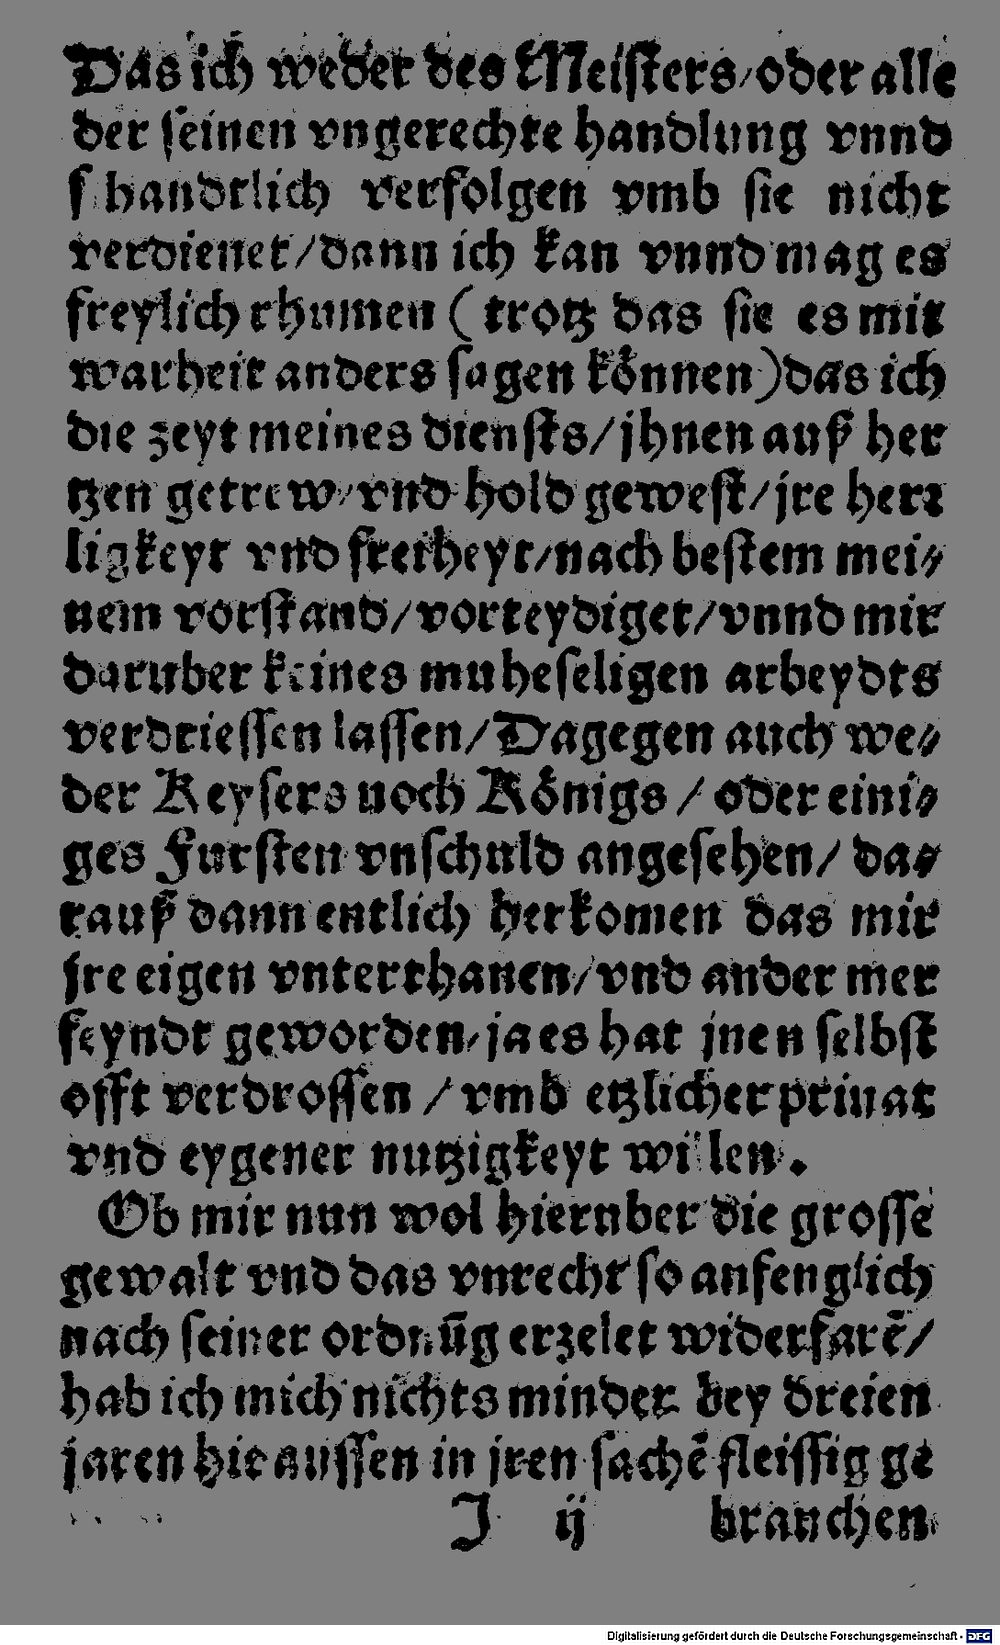 Das ich weder des Meisters/oder alle
der seinen vngerechte handlung vnnd
schandtlich verfolgen vmb sie nicht
verdienet/dann ich kan vnnd mag es
freylich rhumen (trotz das sie es mit
warheit anders sagen können) das ich
die zeyt meines diensts/jhnen auß her
tzen getrew/vnd hold gewest/jre herr
ligkeyt vnd freiheyt/nach bestem mei⸗
nem vorstand/vorteydiget/vnnd mir
daruber keines muheseligen arbeydts
verdriessen lassen/Dagegen auch we⸗
der Keysers noch Königs/oder eini⸗
ges Fursten vnschuld angesehen/da⸗
rauß dann entlich herkomen das mir
jre eigen vnterthanen/vnd ander mer
feyndt geworden/ja es hat jnen selbst
offt verdrossen/vmb etzlicher priuat
vnd eygener nutzigkeyt willen.
Ob mir nun wol hieruber die grosse
gewalt vnd das vnrecht so anfenglich
nach seiner ordnūg erzelet widerfarē/
hab ich mich nichts minder bey dreien
jaren hie aussen in jren sachē fleissig ge
J ij brauchen
Digitalisierung gefördert durch die Deutsche Forschungsgemeinschaft - DFG